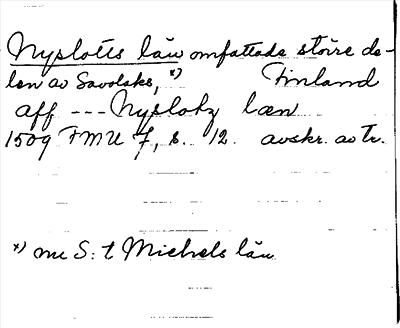 Nyslotts län omfattade större de-
len av Savolaks, *) Finland
aff --- Nyslotz læn
1509 FMU 7, s. 12. avskr. av tr.
*) nu S:t Michels län